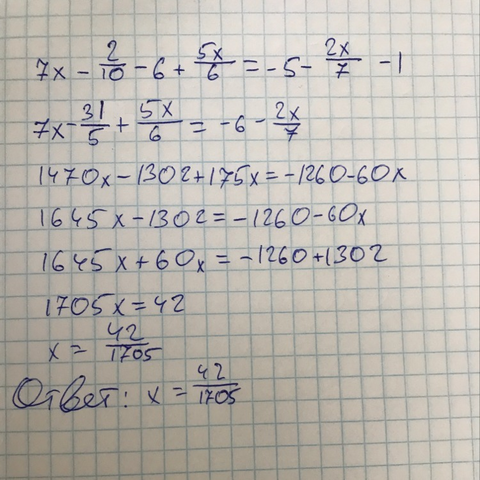 7x - 2/10 - 6 + 5x/6 = -5 - 2x/7 - 1
7x - 31/5 + 5x/6 = -6 - 2x/7
1470x - 1302 + 175x = -1260 - 60x
1645x - 1302 = -1260 - 60x
1645x + 60x = -1260 + 1302
1705x = 42
x = 42/1705
Ответ: x = 42/1705